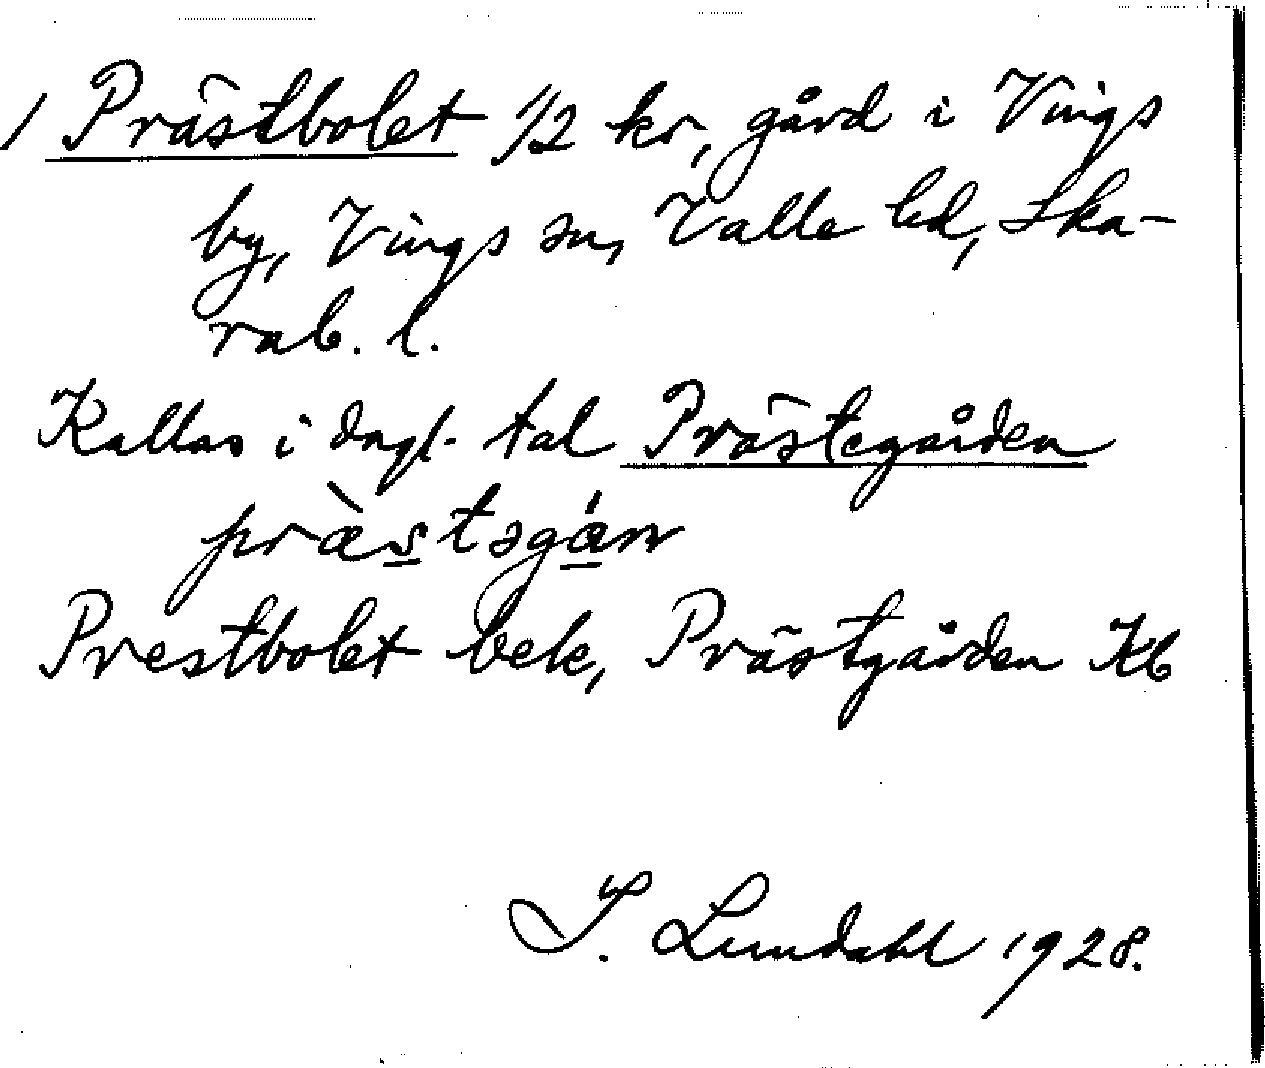 / Prästbolet 1/2 kr, gård i Vings
by, Vings sn, Valle hd, Ska-
rab. l.
Kallas i dagl. tal Prästegården
præ̀stəgán
Prestbolet bek, Prästgården Kb
I. Lundahl 1928.